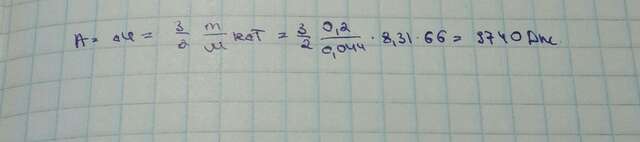 A = ΔU = 3/2 m/M RΔT = 3/2 0,2/0,044 · 8,31 · 66 = 3740 Дж.